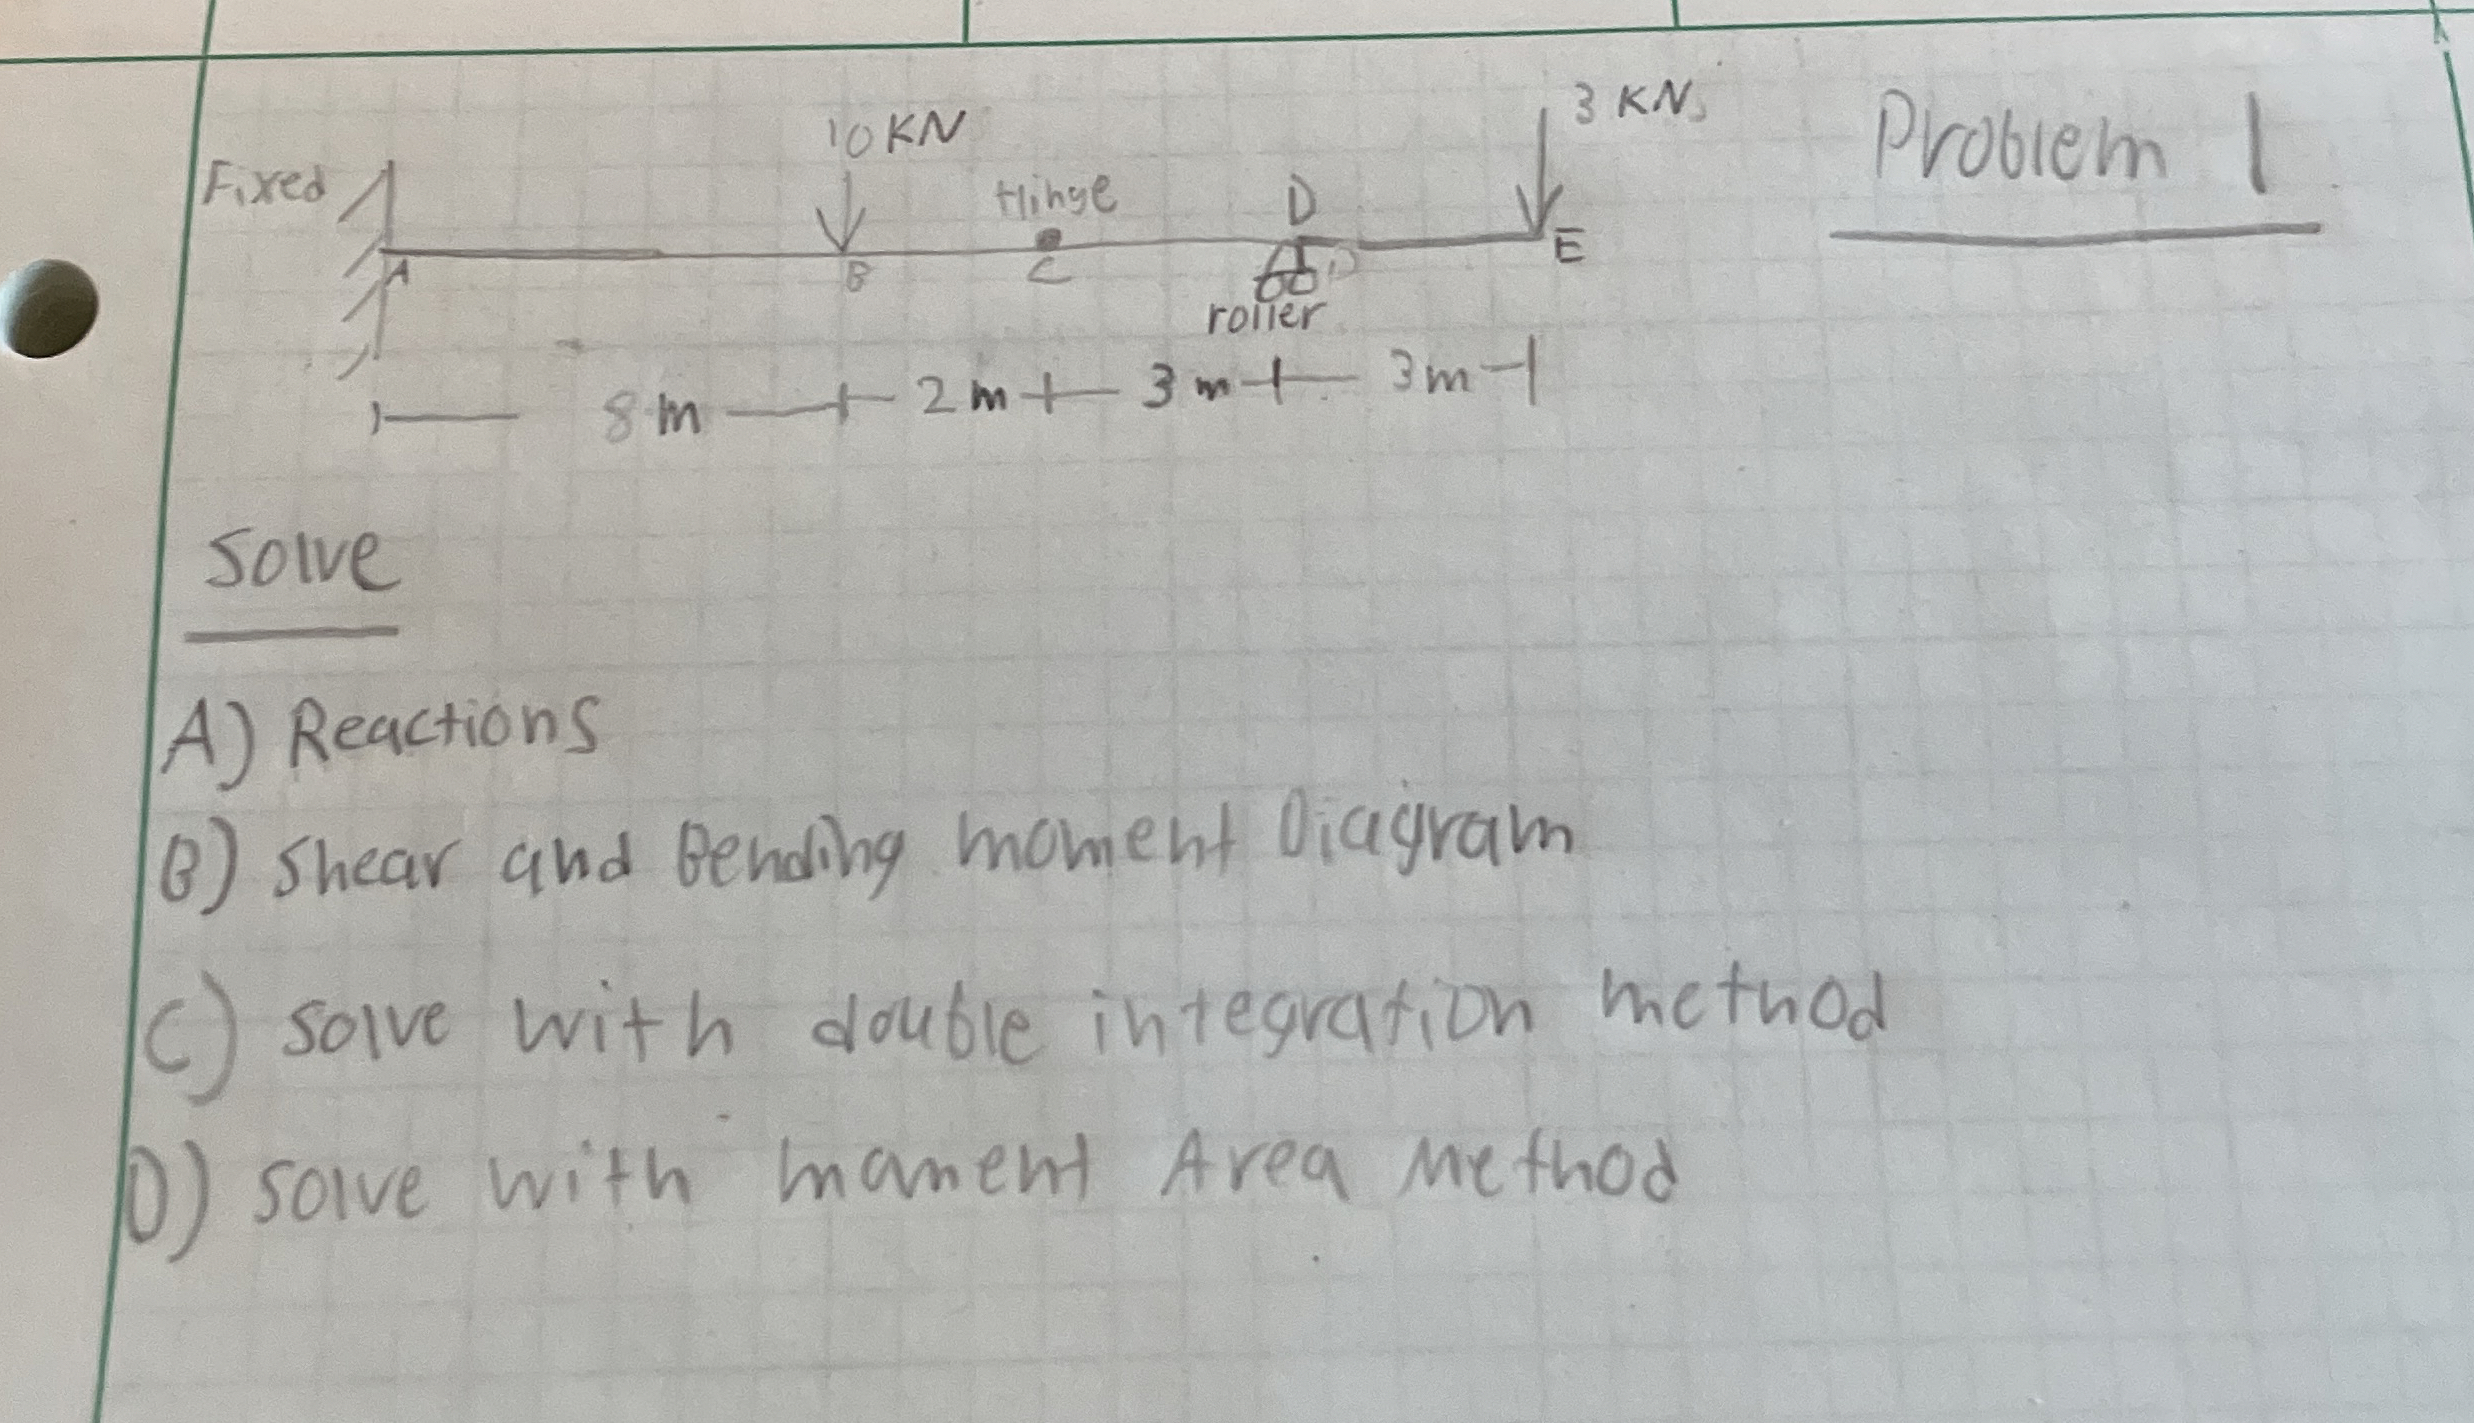 Problem 1
10 KN
3 KN
Fixed
Hinge
D
A
B
C
D
E
roller
8 m
2 m
3 m
3 m
Solve
A) Reactions
B) Shear and Bending moment Diagram
C) Solve with double integration method
D) Solve with moment Area Method